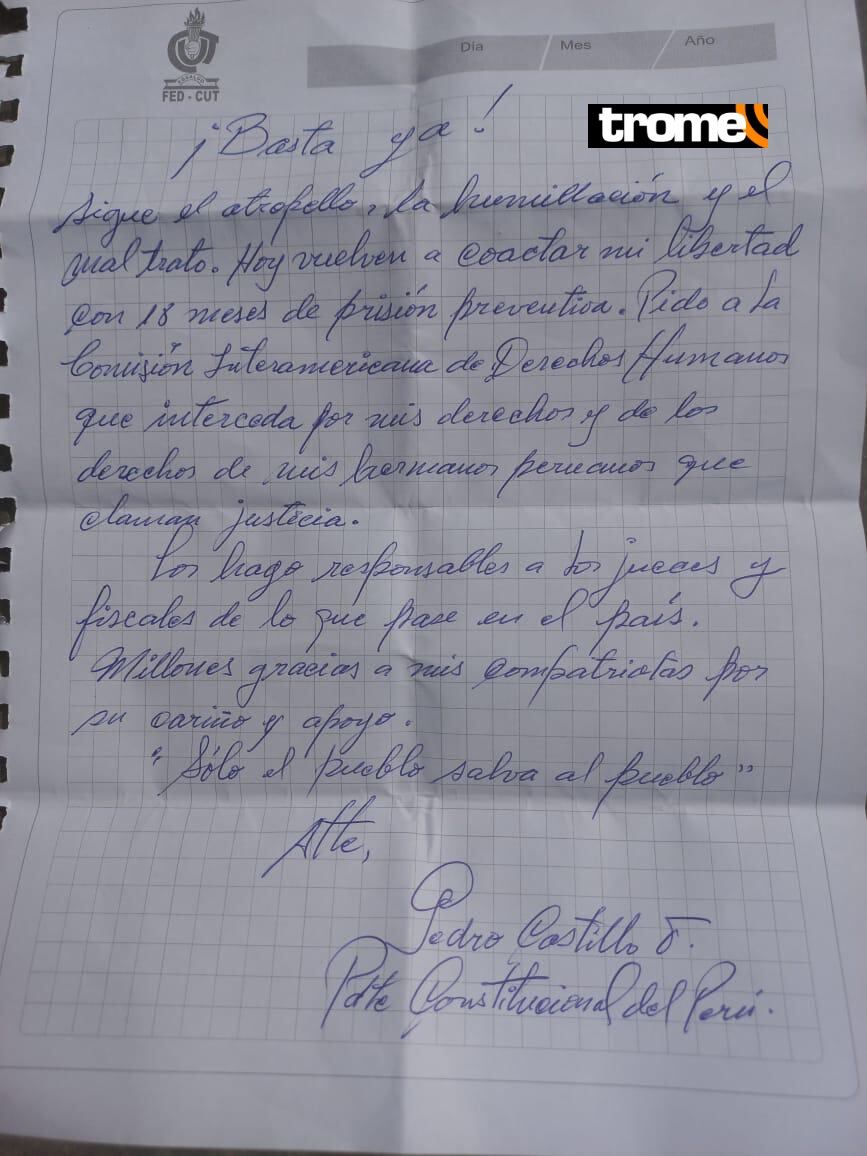 ESSALUD
FED - CUT
Día Mes Año
trome
¡Basta ya!
Sigue el atropello, la humillación y el
maltrato. Hoy vuelven a coactar mi libertad
con 18 meses de prisión preventiva. Pido a la
Comisión Interamericana de Derechos Humanos
que interceda por mis derechos y de los
derechos de mis hermanos peruanos que
claman justicia.
Los hago responsables a los jueces y
fiscales de lo que pase en el país.
Millones gracias a mis compatriotas por
su cariño y apoyo.
"Sólo el pueblo salva al pueblo"
Atte,
Pedro Castillo T.
Pdte Constitucional del Perú.